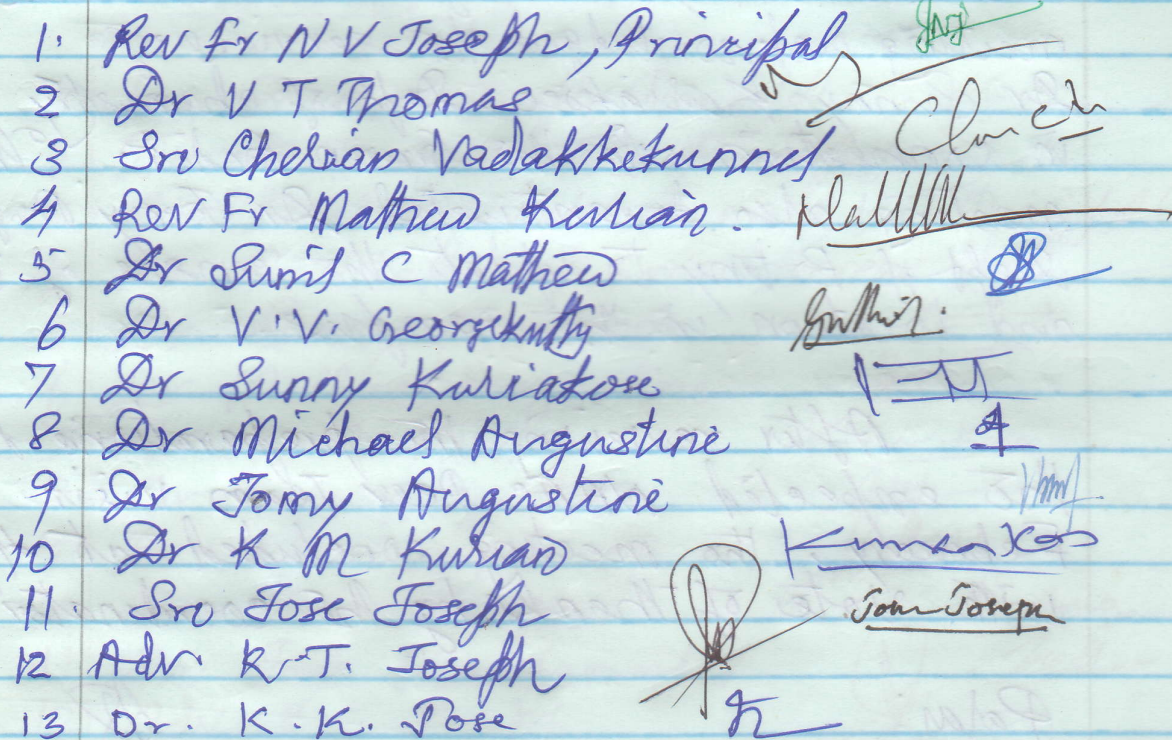 1. Rev Fr N V Joseph, Principal
2 Dr V T Thomas
3 Sro Cherian Vadakkekunnel
4 Rev Fr Mathew Kurian.
5 Dr Sunil C Mathew
6 Dr V.V. Georgekutty
7 Dr Sunny Kuriakose
8 Dr Michael Augustine
9 Dr Tomy Augustine
10 Dr K M Kurian
11. Sro Jose Joseph Tom Joseph
12 Adv. K.T. Joseph
13 Dr. K.K. Jose